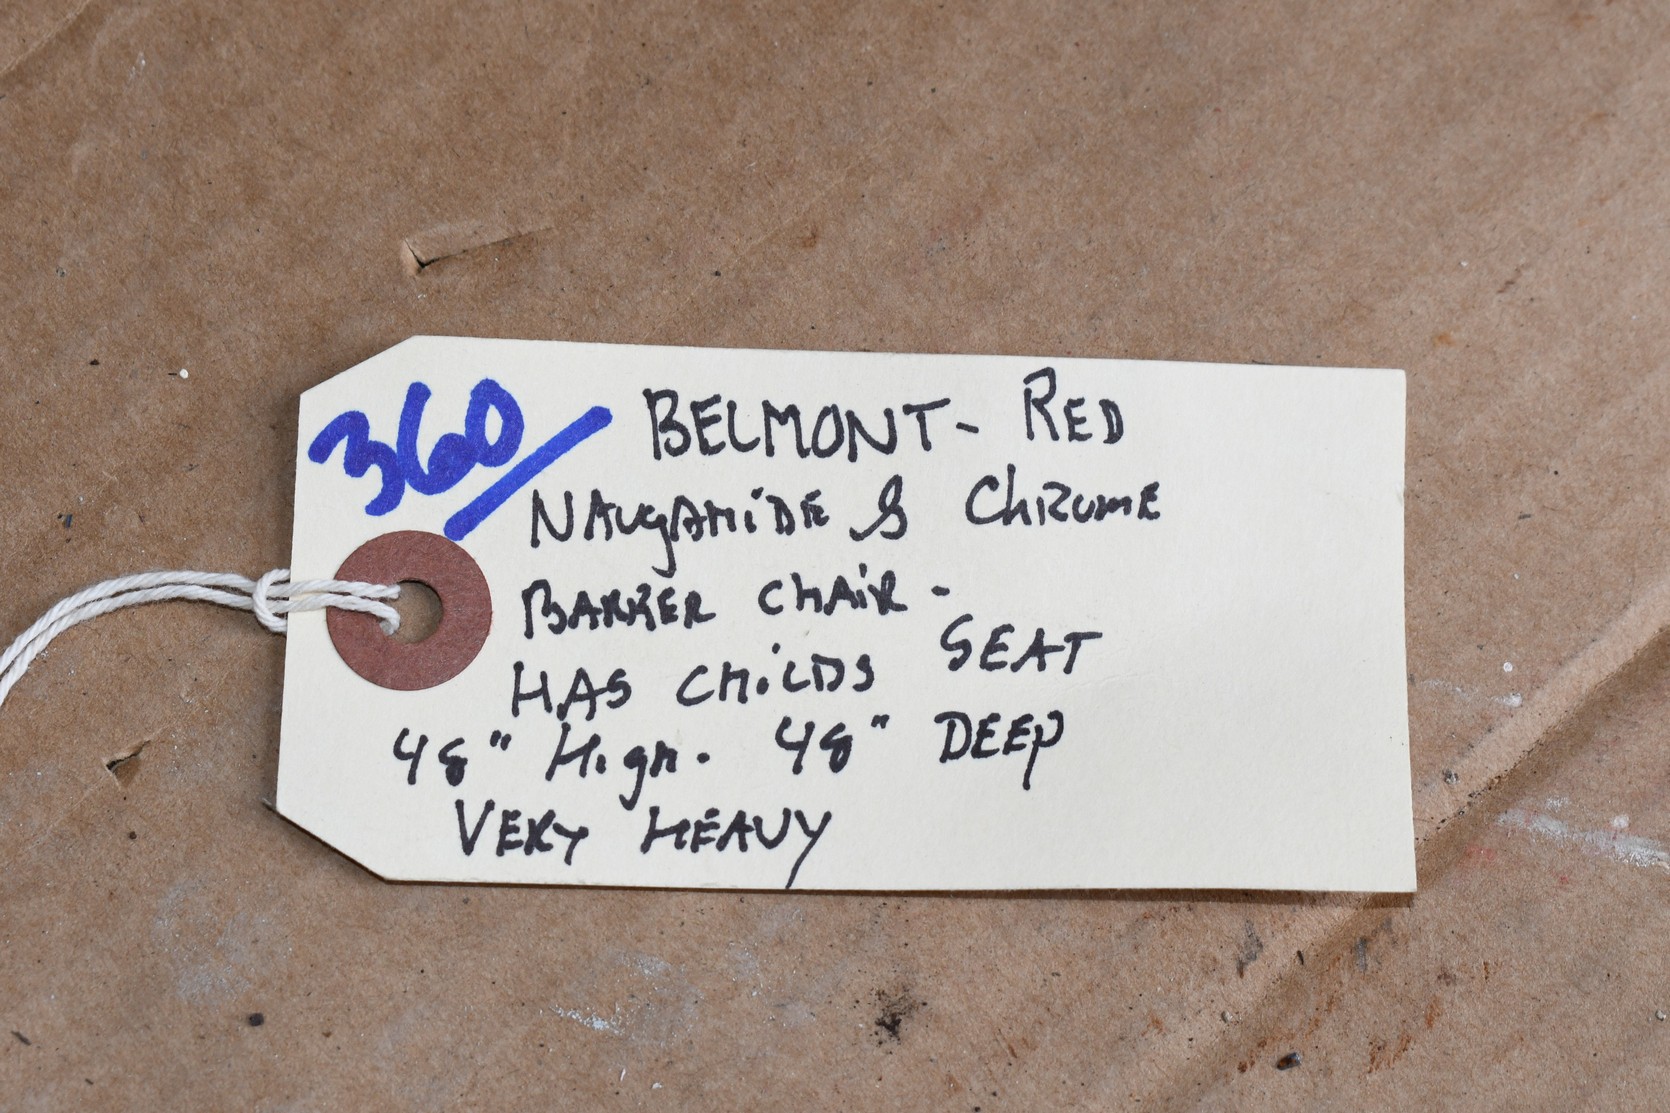 360/ BELMONT - RED
NAUGAHIDE & CHROME
BARBER CHAIR -
HAS CHILDS SEAT
48" HIGH. 48" DEEP
VERY HEAVY